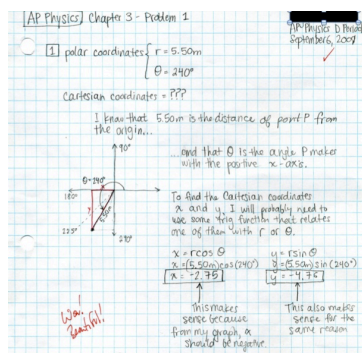 AP Physics Chapter 3 - Problem 1
AP Physics D Period
September 6, 2007
1 polar coordinates { r = 5.50m
θ = 240°
Cartesian coordinates = ???
I know that 5.50m is the distance of point P from
the origin...
...and that θ is the angle P makes
with the positive x-axis.
90°
θ=240°
180°
5.50m
225°
240°
To find the Cartesian coordinates
x and y, I will probably need to
use some trig function that relates
one of them with r or θ.
x = rcos θ
x = (5.50m)cos(240°)
x = -2.75
y = rsin θ
y = (5.50m)sin(240°)
y = -4.76
This makes
sense because
from my graph, x
should be negative.
This also makes
sense for the
same reason
Wow!
Beautiful!